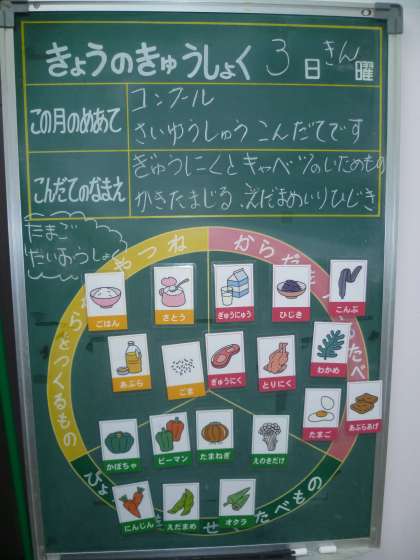 きょうのきゅうしょく 3日 きん曜
この月のめあて
コンクール
さいゆうしゅう こんだてです
こんだてのなまえ
ぎゅうにくとキャベツのいためもの
かきたまじる えだまめいりひじき
たまご
だいおうしょ
ごはん
さとう
ぎゅうにゅう
ひじき
こんぶ
あぶら
ごま
ぎゅうにく
とりにく
わかめ
たまご
あぶらあげ
かぼちゃ
ピーマン
たまねぎ
えのきだけ
にんじん
えだまめ
オクラ